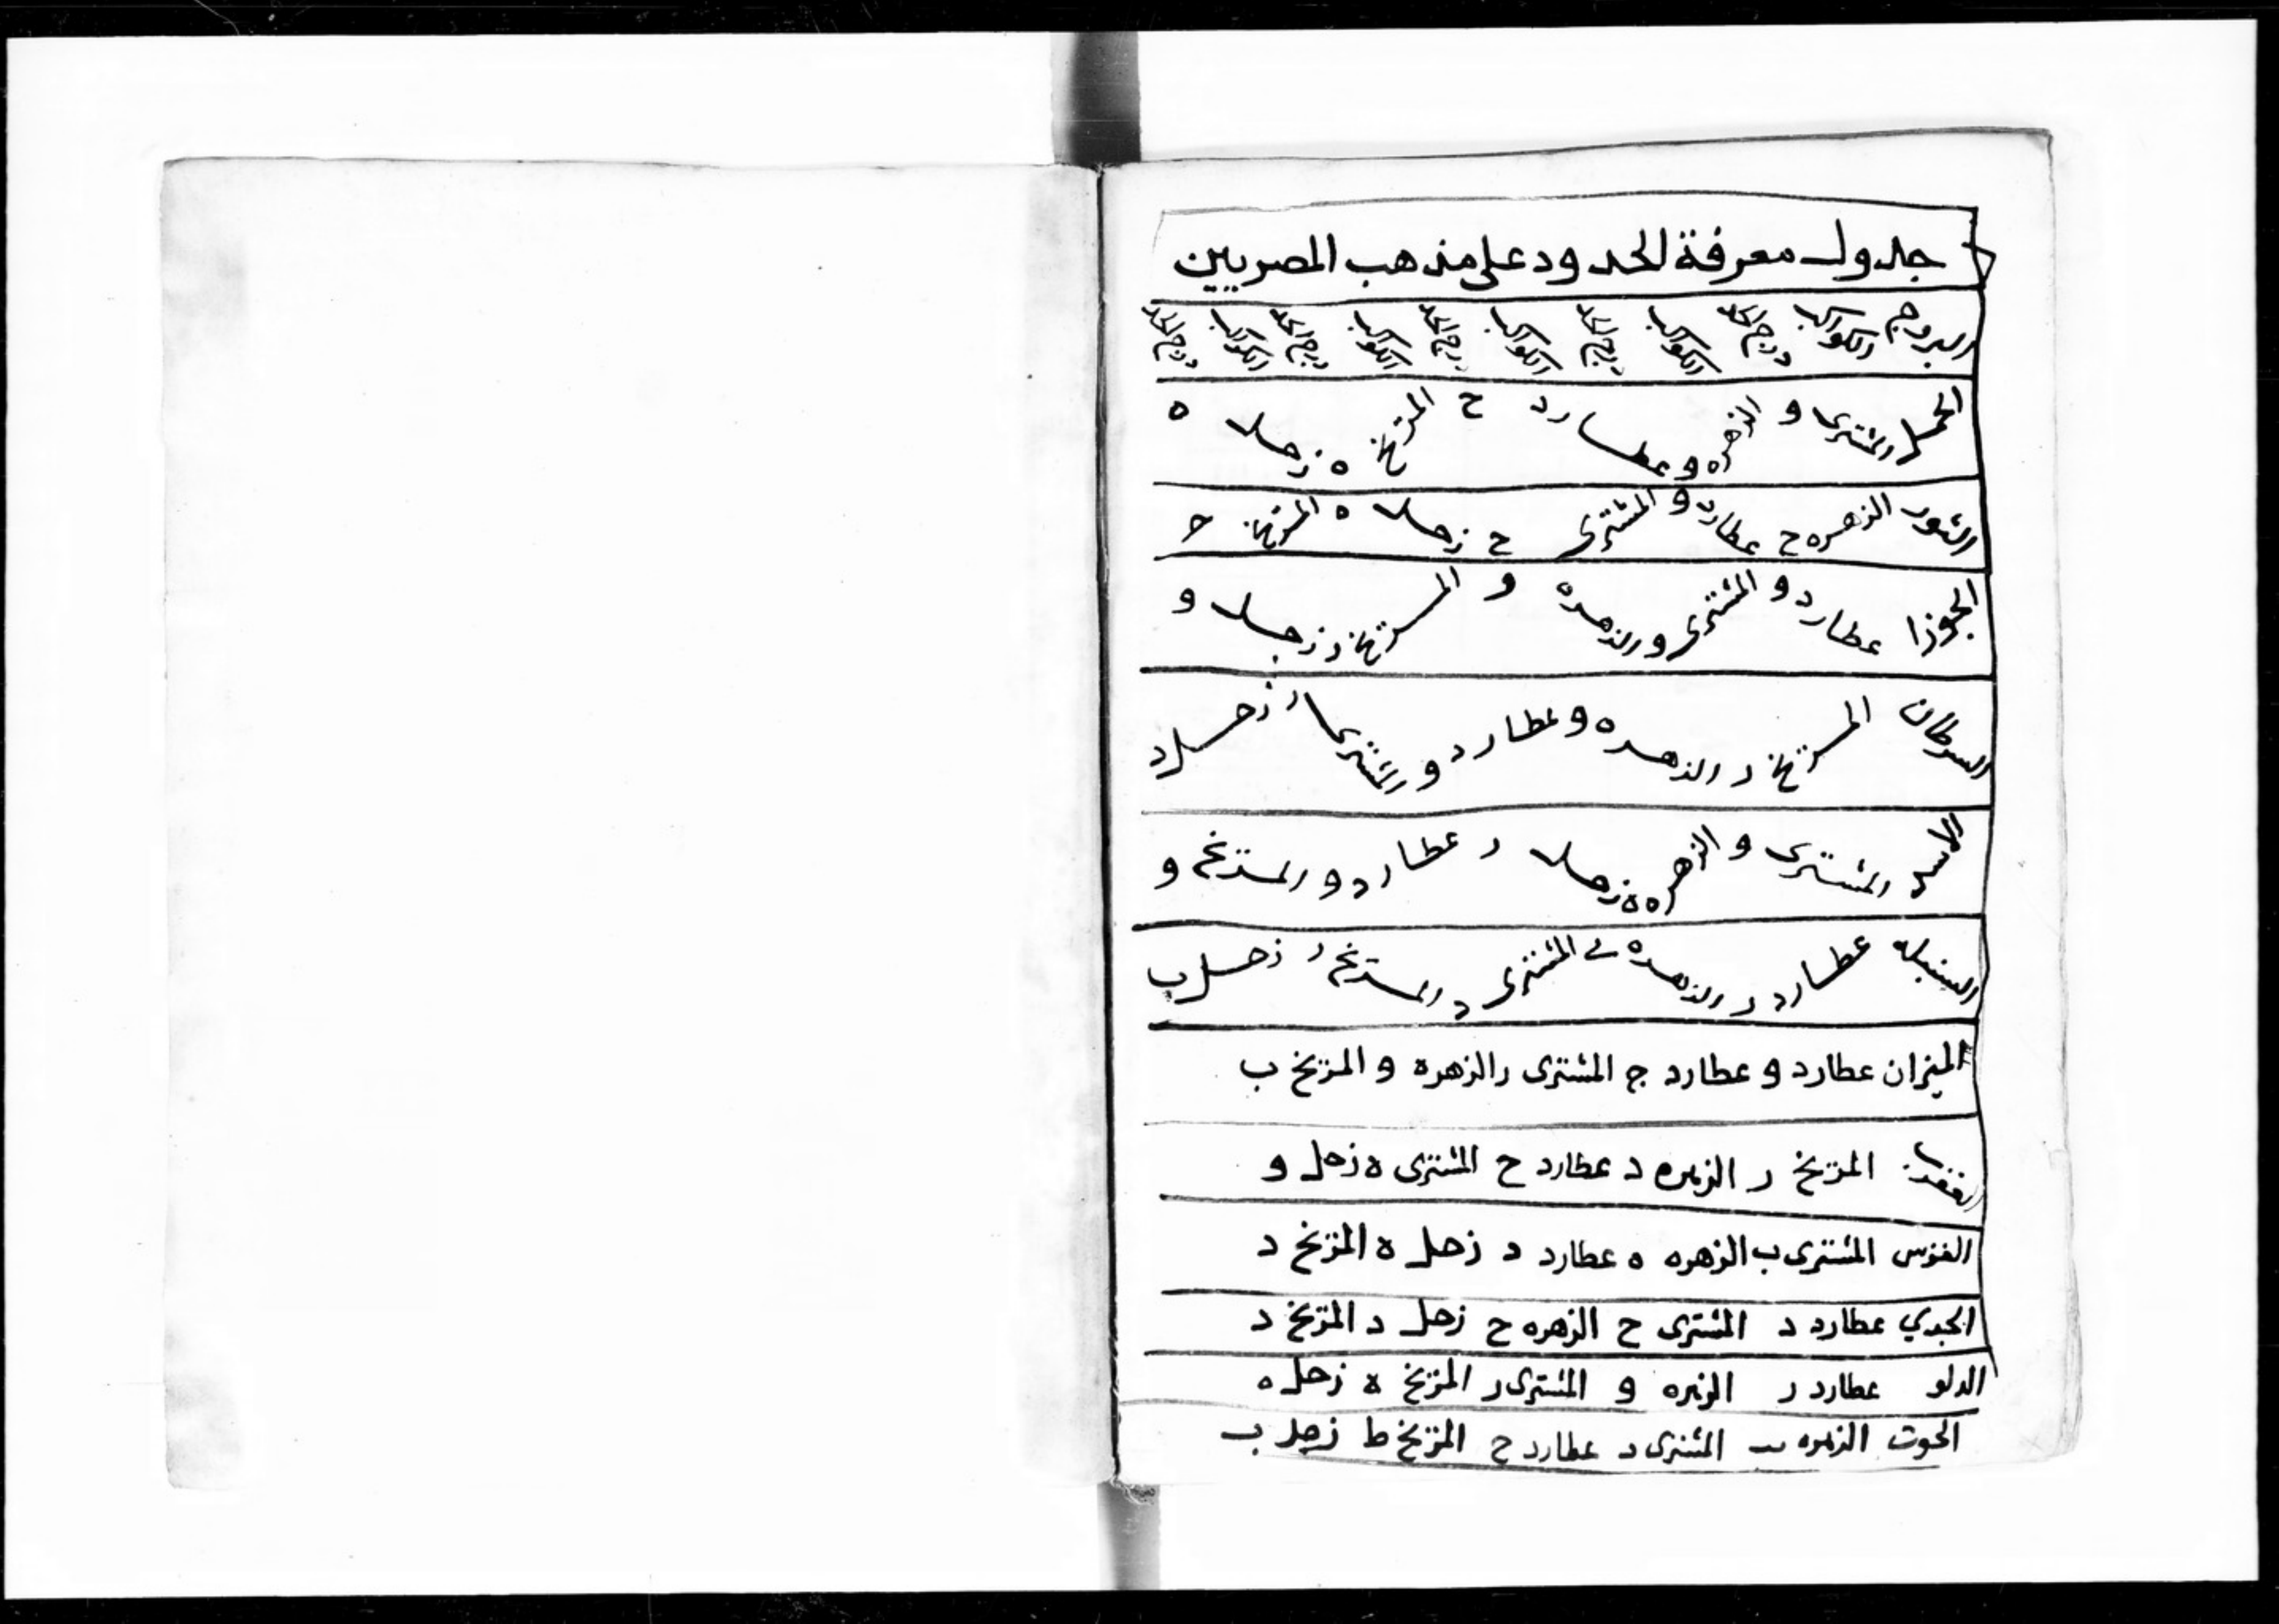 جدول معرفة الحدود على مذهب المصريين
البروج الكواكب درج الحد الكواكب درج الحد الكواكب درج الحد الكواكب درج الحد الكواكب درج الحد
الحمل المشترى و الزهره و عطارد ح المريخ ه زحل ه
الثور الزهره ح عطارد و المشترى ح زحل ه المريخ ح
الجوزا عطارد و المشترى و الزهره و المريخ د زحل و
السرطان المريخ د الزهره و عطارد و المشترى ر زحل د
الاسد المشترى و الزهره ه زحل ر عطارد و المريخ و
السنبله عطارد ر الزهره ى المشترى د المريخ ر زحل ب
الميزان عطارد و عطارد ج المشترى ر الزهره و المريخ ب
العقرب المريخ ر الزهره د عطارد ح المشترى ه زحل و
القوس المشترى ب الزهره ه عطارد د زحل ه المريخ د
الجدي عطارد د المشترى ح الزهره ح زحل د المريخ د
الدلو عطارد ر الزهره و المشترى ر المريخ ه زحل ه
الحوت الزهره ب المشترى د عطارد ح المريخ ط زحل ب